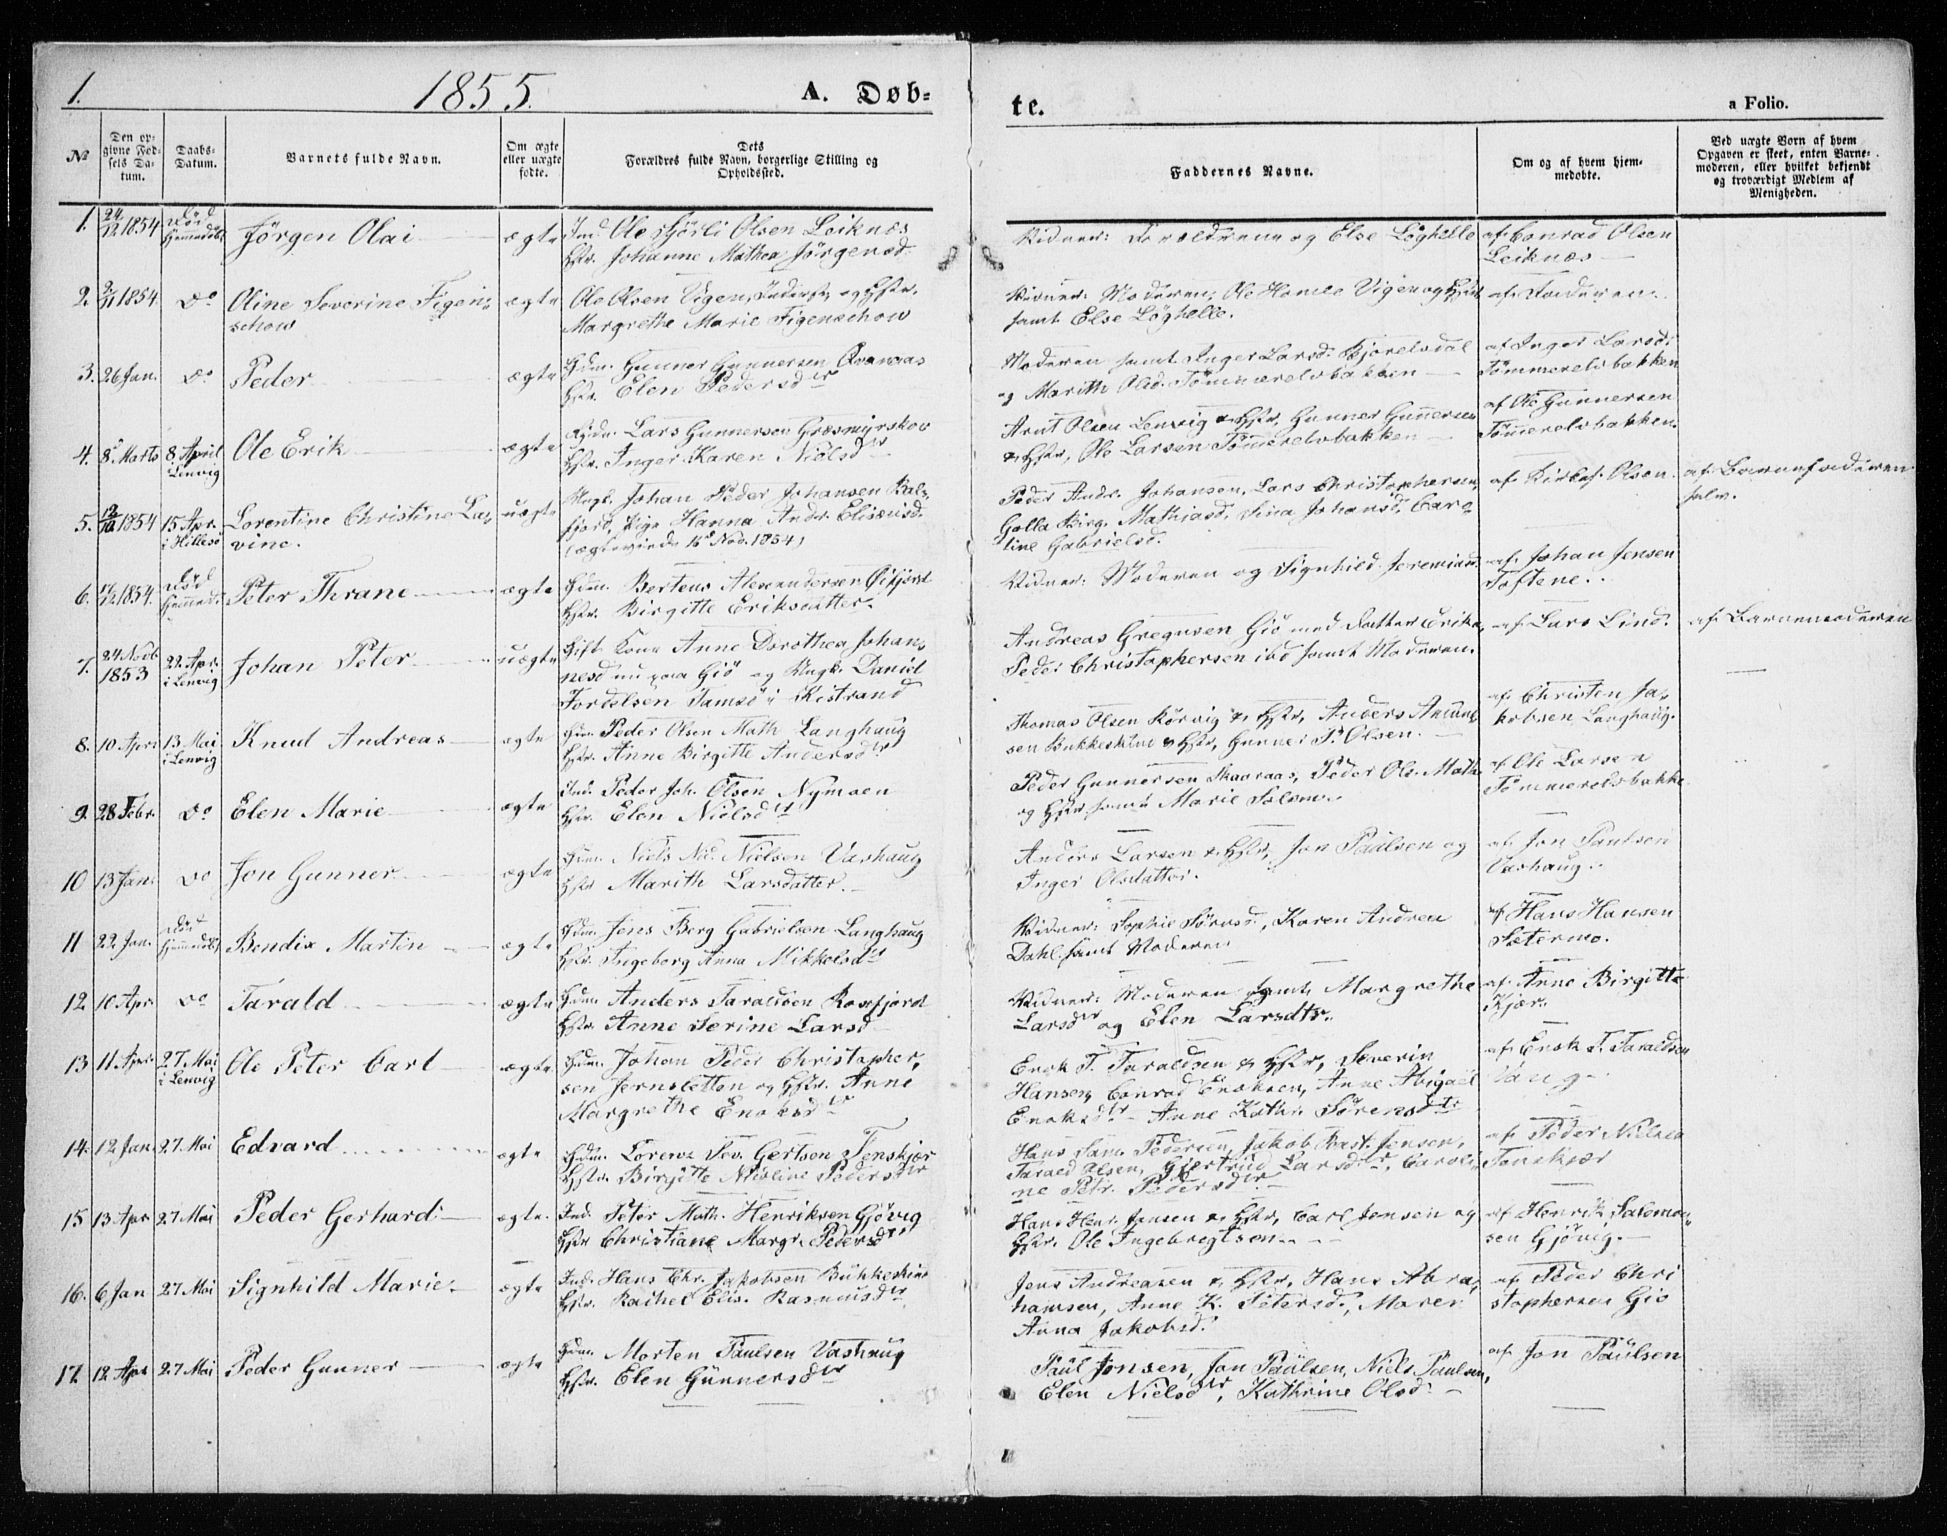 1. 1855. A. Døb-
te. a Folio.
№
Den op-
givne Fød-
sels Da-
tum.
Daabs-
Datum.
Barnets fulde Navn.
Om ægte
eller uægte
fødte.
Dets
Forældres fulde Navn, borgerlige Stilling og
Opholdssted.
Faddernes Navne.
Om og af hvem hjem-
medøbte.
Ved uægte Børn af hvem
Opgaven er skeet, enten Barne-
moderen, eller hvilket bekjendt
og troværdigt Medlem af
Menigheden.
1. 24/12 1854 Død Hjemmedøbt Jörgen Olai ægte Ind. Ole Hjörli Olsen Leiknæs
Hstr. Johanne Mathea Jörgensd.
Vidner: Forældrene og Else Löghelle af Conrad Olsen
Leiknæs
2. 2/11 1854 do Oline Severine Figen-
schow ægte Ole Olsen Vigen, Inderst, og Hstr.
Margrethe Marie Figenschow
Vidner: Moderen, Ole Hansen Vigen og Hstr. af Faderen.
samt Else Löghelle.
3. 26 Jan. do Peder ægte Gdm. Gunner Gunnersen
Hstr. Elen Pedersdtr
Moderen samt Inger Larsd. Bjorelvdal
og Marith Olsd. Tömmerelvbakken
af Inger Larsd.
Tömmerelvbakken
4. 8 Marts 8 April i Lenvig Ole Erik ægte Gdm. Lars Gunnersen Græsmyrskov
Hstr. Inger Karen Nielsdtr
Arnt Olsen Lenvig & Hstr, Gunner Gunnersen
& Hstr, Ole Larsen Tömmerelvbakken
af Ole Gunnersen
Tömmerelvbakken.
5. 12/10 1854 15 Apr. i Hillesö Lorentine Christine La-
vine. uægte Ungk. Johan Peder Johansen Bals-
fjord, Pige Hanna Andr. Elisæusd.
(ægteviede 15 Nov. 1854)
Peder Andr. Johansen, Lars Christophersen,
Golla Birg. Mathiasd, Sina Johansd, Caro-
line Gabrielsd.
af Kirkes. Olsen. af Barnefaderen
selv.
6. 17/12 1854. Død Hjemmed. Peter Thrane ægte Gdm. Berteus Alexandersen Öifjord
Hstr. Birgitte Eriksdatter.
Vidner: Moderen og Signhild Jeremiasd. af Johan Jensen
Toftene.
7. 24 Novb. 1853 22 Apr. i Lenvig Johan Peter uægte Gift Kone Anne Dorothea Johan-
nesd nu paa Giö og Ungk. Daniel
Fordelsen Tamsö i Kistrand
Andreas Gregusen Giö med Datter Erika,
Peder Christophersen ibd samt Moderen.
af Lars Lind. af Barnemoderen
8. 10 April 13 Mai i Lenvig Knud Andreas ægte Gdm. Peder Olsen Math Langhaug
Hstr. Anne Birgitte Andersdtr
Thomas Olsen Rörvig & Hstr, Anders Amund-
sen Bukkeskin & Hstr, Gunner P. Olsen.
af Christen Ja-
kobsen Langhaug.
9. 28 Febr. do Elen Marie ægte Ind. Peder Joh. Olsen Nymoen
Hstr. Elen Nielsdtr
Peder Gunnersen Skaaraas, Peder Ols. Math
og Hstr samt Marie Salom.
af Ole Larsen
Tömmerelvbakke
10 13 Jan. do Jon Gunner ægte Gdm. Niels Nic. Nielsen Vashaug
Hstr Marith Larsdatter.
Anders Larsen & Hstr, Jon Paulsen og
Inger Olsdatter.
af Jon Paulsen
Vashaug.
11 22 Jan. Død Hjemmedøbt Bendix Martin ægte Gdm. Jens Berg Gabrielsen Langhaug
Hstr. Ingeborg Anna Mikkelsdtr
Vidner: Sophie Sörensd., Karen Andrea
Dahl samt Moderen
af Hans Hansen
Sætermo.
12 10 Apr do Tarald ægte Gdm. Anders Taraldsen Rossfjord
Hstr. Anne Serine Larsd
Vidner: Moderen samt Margrethe
Larsdtr og Elen Larsdtr.
af Anne Birgitte
Kjær.
13 11 Apr. 27 Mai i Lenvig Ole Peter Carl ægte Gdm. Johan Peder Christopher-
sen Jernsletten og Hstr. Anne
Margrethe Enoksdtr
Enok T. Taraldsen & Hstr, Severin
Hansen, Conrad Enoksen, Anne Abigael
Enoksdtr Anne Kathr. Sörensdtr
af Enok T. Taraldsen
Vang.
14. 12 Jan. 27 Mai Edvard ægte Gdm. Lorenz Sev. Gertsen Tenskjær
Hstr. Birgitte Nicoline Pedersdtr
Hans Sam. Pedersen, Jakob Bast. Jensen,
Tarald Olsen, Gjertrud Larsdtr, Caroli-
ne Petr. Pedersdtr
af Peder Nielsen
Tenskjær
15 13 Apr 27 Mai Peder Gerhard ægte. Ind. Peter Math. Henriksen Gjövig
Hstr Christiane Margr. Pedersdtr
Hans Henr. Jensen & Hstr, Carl Jensen og
Hstr. Ole Ingebregtsen.
af Henrik Salomon-
sen Gjövig.
16. 6 Jan 27 Mai Signhild Marie. ægte Ind. Hans Chr. Jakobsen Bukkeskin
Hstr. Rachel Elis. Rasmusdtr
Jens Andreasen & Hstr, Hans Abra-
hamsen, Anne K. Petersd., Maren
Anna Jakobsd.
af Peder Chri
stophersen Gio
17. 12 Apr 27 Mai Peder Gunner ægte Gdm. Morten Paulsen Vashaug
Hstr. Elen Gunnersdtr
Paul Jonsen, Jon Paulsen, Niels Paulsen,
Elen Nielsdtr, Kathrine Olsd.
af Jon Paulsen